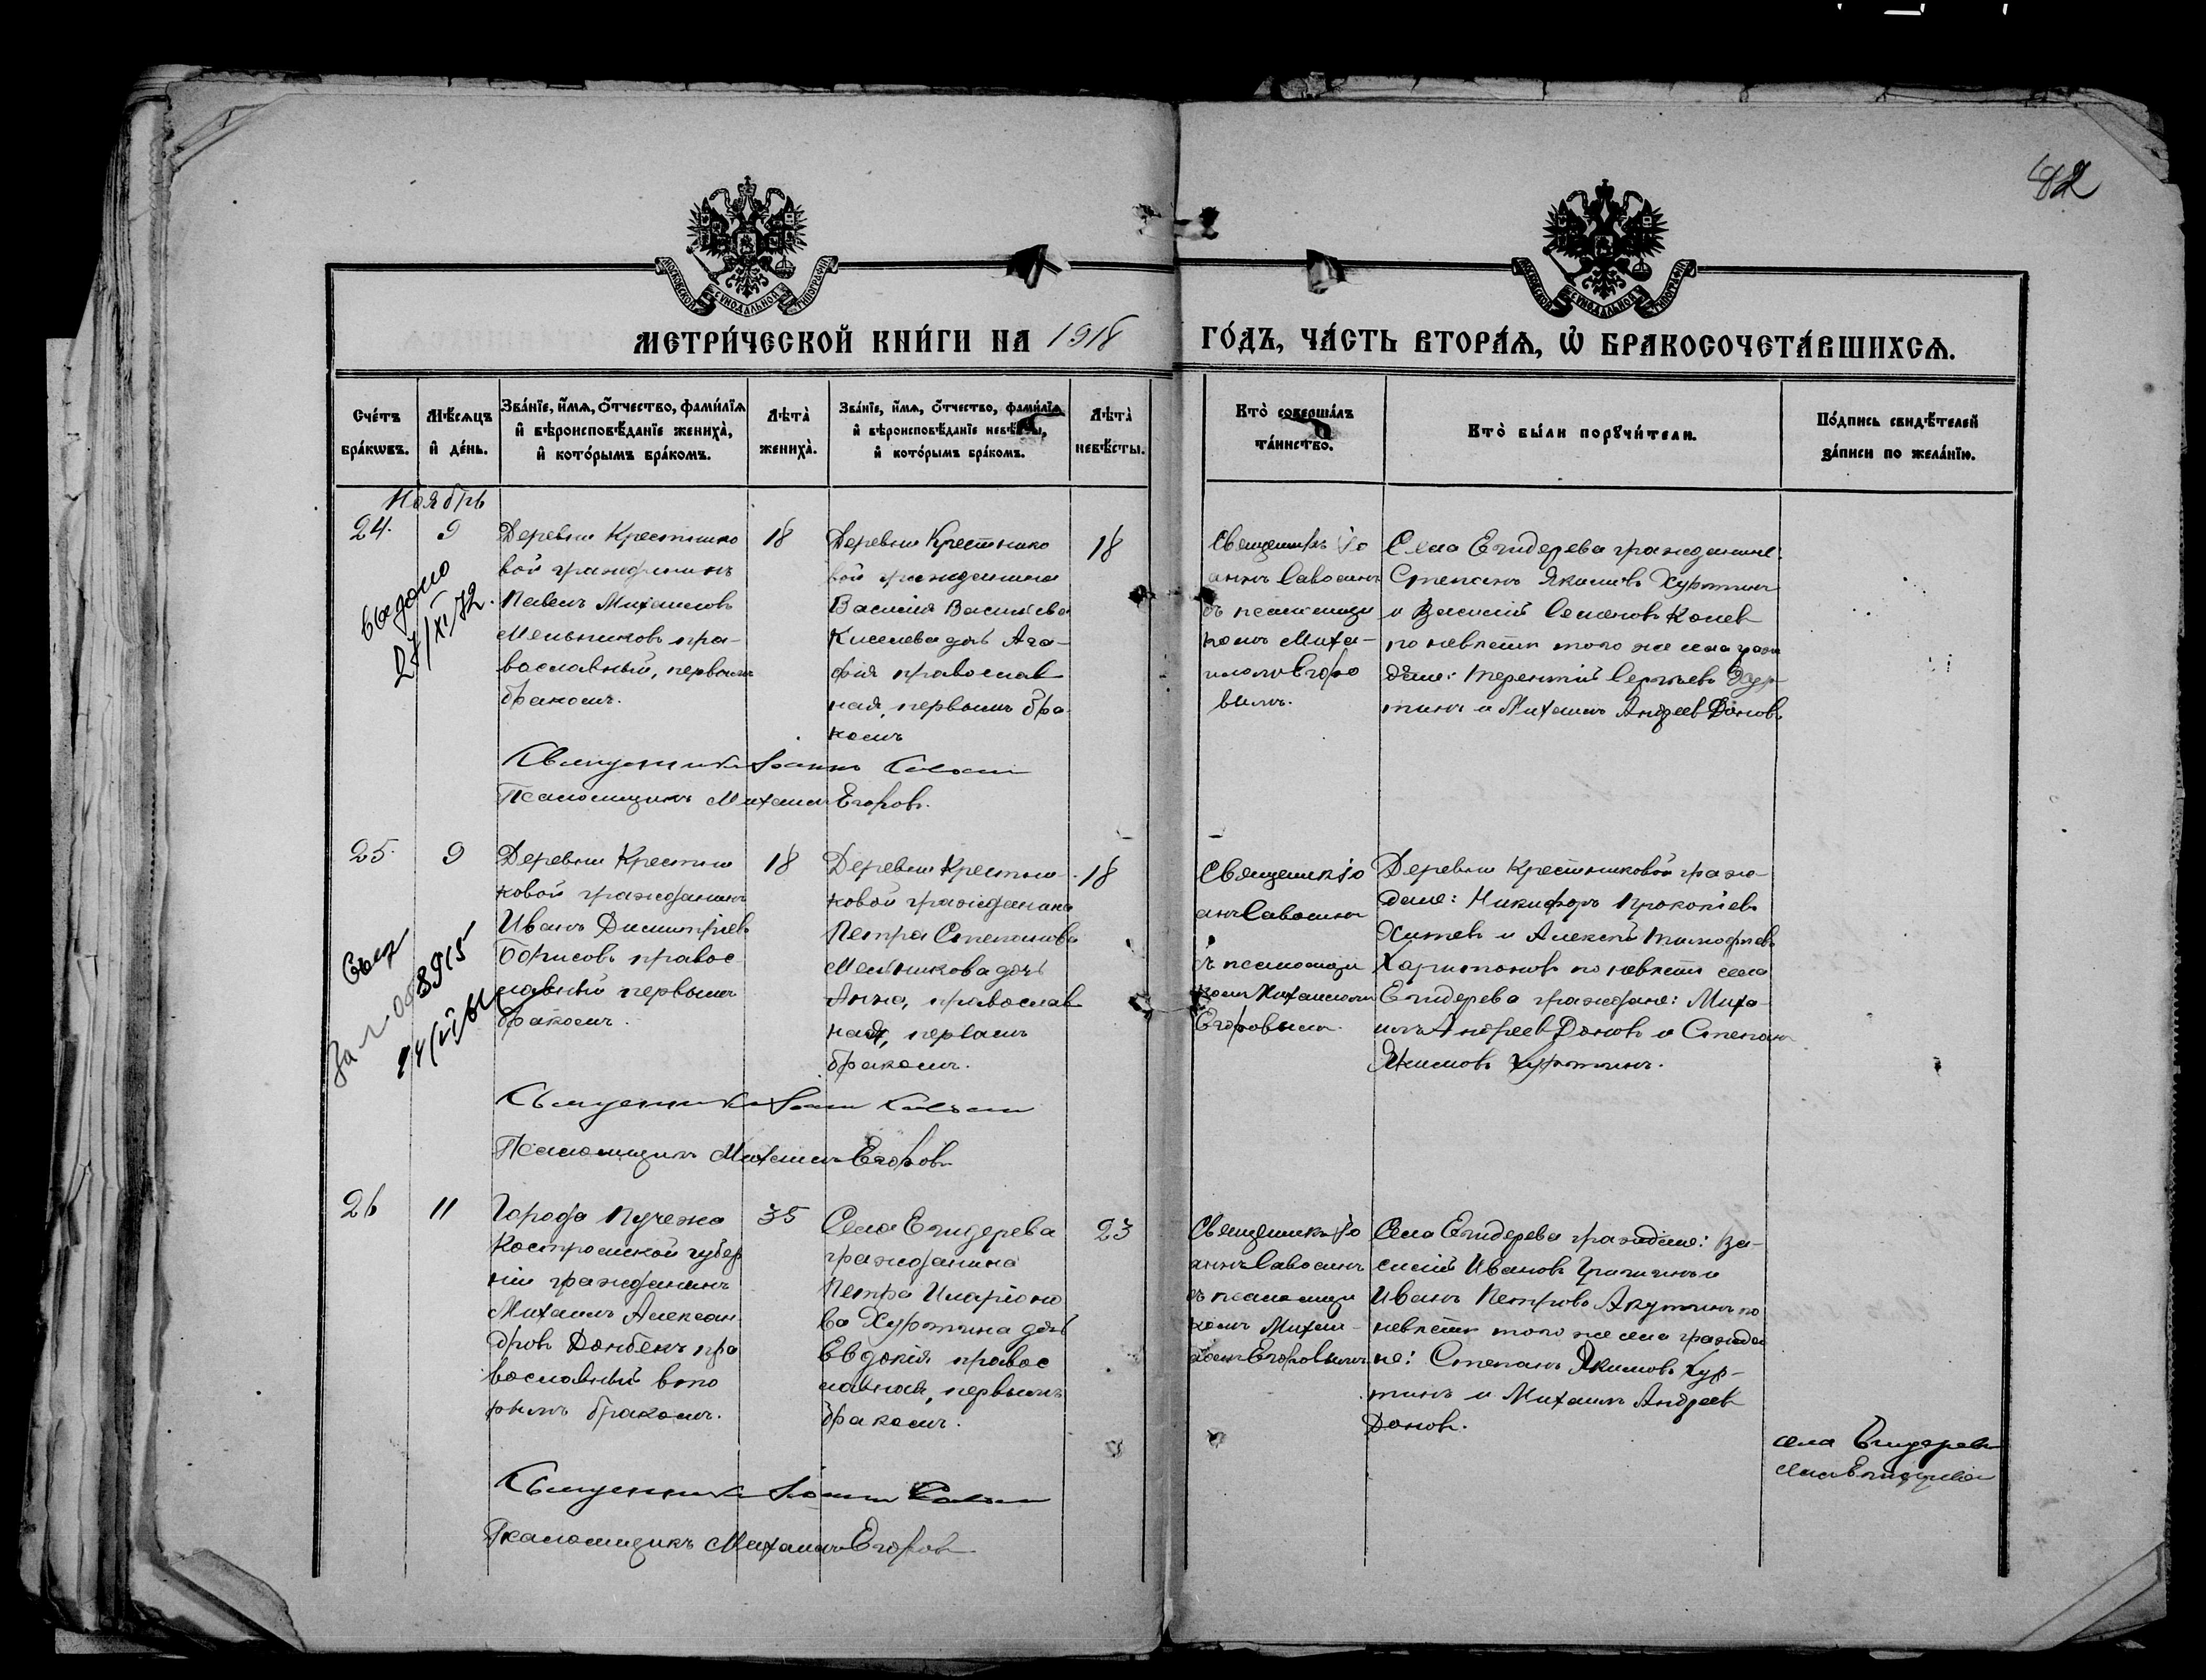 82
МОСКОВСКОЙ СУНОДАЛЬНОЙ ТИПОГРАФІИ
МОСКОВСКОЙ СУНОДАЛЬНОЙ ТИПОГРАФІИ
МЕТРИ́ЧЕСКОЙ КНИ́ГИ НА 1918 ГО́ДЪ, ЧА́СТЬ ВТОРА́Ѧ, Ѡ҆ БРАКОСОЧЕТА́ВШИХСѦ.
Сче́тъ
бра́кѡвъ.
Мѣ́сѧцъ
и҆ де́нь.
Зва́нїе, и҆́мѧ, ѻ҆́тчество, фами́лїѧ
и҆ вѣроисповѣ́данїе жениха̀,
и҆ кото́рымъ бра́комъ.
Лѣ́та̀
жениха̀.
Зва́нїе, и҆́мѧ, ѻ҆́тчество, фами́лїѧ
и҆ вѣроисповѣ́данїе невѣ́сты,
и҆ кото́рымъ бра́комъ.
Лѣ́та̀
невѣ́сты.
Кто̀ соверша́лъ
та́инство.
Кто̀ бы́ли порꙋчи́тели.
По́дпись свидѣ́телей
за́писи по жела́нїю.
Ноябрь
24.
9
Деревни Крестнико
вой гражданинъ
Павелъ Михаиловъ
Мельниковъ пра-
вославный, первымъ
бракомъ.
18
Деревни Крестнико
вой гражданина
Василія Васильева
Киселева дочь Ага-
фія православ
ная, первымъ бра-
комъ
18
Священникъ Іо
аннъ Савоминъ
съ псаломщи
комъ Миха-
иломъ Егоро
вымъ.
Села Ендерева граждане:
Степанъ Якимовъ Хуртинъ
и Василій Семеновъ Конев
по невѣстѣ того же села граж
дане: Терентій Сергѣевъ
тинъ и Михаилъ Андреев Доновъ
выдано
27/XI/72.
Священникъ Іоаннъ
Псаломщикъ Михаилъ Егоровъ.
25.
9
Деревни Крестни
ковой гражданинъ
Иванъ Димитріевъ
Борисовъ правос
лавный первымъ
бракомъ.
18
Деревни Крестни-
ковой гражданина
Петра Степанова
Мельникова дочь
Анна, православ
ная, первымъ
бракомъ.
18
Священникъ Іо
аннъ Савоминъ
съ псаломщи
комъ Михаиломъ
Егоровымъ.
Деревни Крестниковой граж-
дане: Никифоръ Прокопіевъ
Хитевъ и Алексѣй Тимофѣевъ
Харитоновъ по невѣстѣ села
Ендерева граждане: Миха-
илъ Андреев Доновъ и Степанъ
Якимовъ Хуртинъ.
За №
Священникъ Іоаннъ
Псаломщикъ Михаилъ Егоровъ
26
11
Города Пучежа
Костромской губер
ніи гражданинъ
Михаилъ Алексан
дровъ Донбекъ пра
вославный вто
рымъ бракомъ.
35
Села Ендерева
гражданина
Петра Иларіоно
ва Хуртина дочь
Евдокія правос
лавная, первымъ
бракомъ.
23
Священникъ Іо
аннъ Савоминъ
съ псаломщи
комъ Михаи-
ломъ Егоровымъ
Села Ендерева граждане: Ва-
силій Ивановъ и
Иванъ Петровъ Акутинъ по
невѣстѣ того же села гражда
не: Степанъ Якимовъ Хур-
тинъ и Михаилъ Андреев
Доновъ.
села Ендерева
села Ендерева
Священникъ Іоаннъ
Псаломщикъ Михаилъ Егоровъ